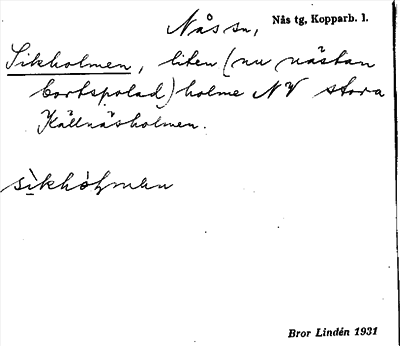 Nås sn, Nås tg, Kopparb. l.
Sikholmen, liten (nu nästan
bortspolad) holme NV stora
Källnäsholmen.
sìkhòlmen
Bror Lindén 1931